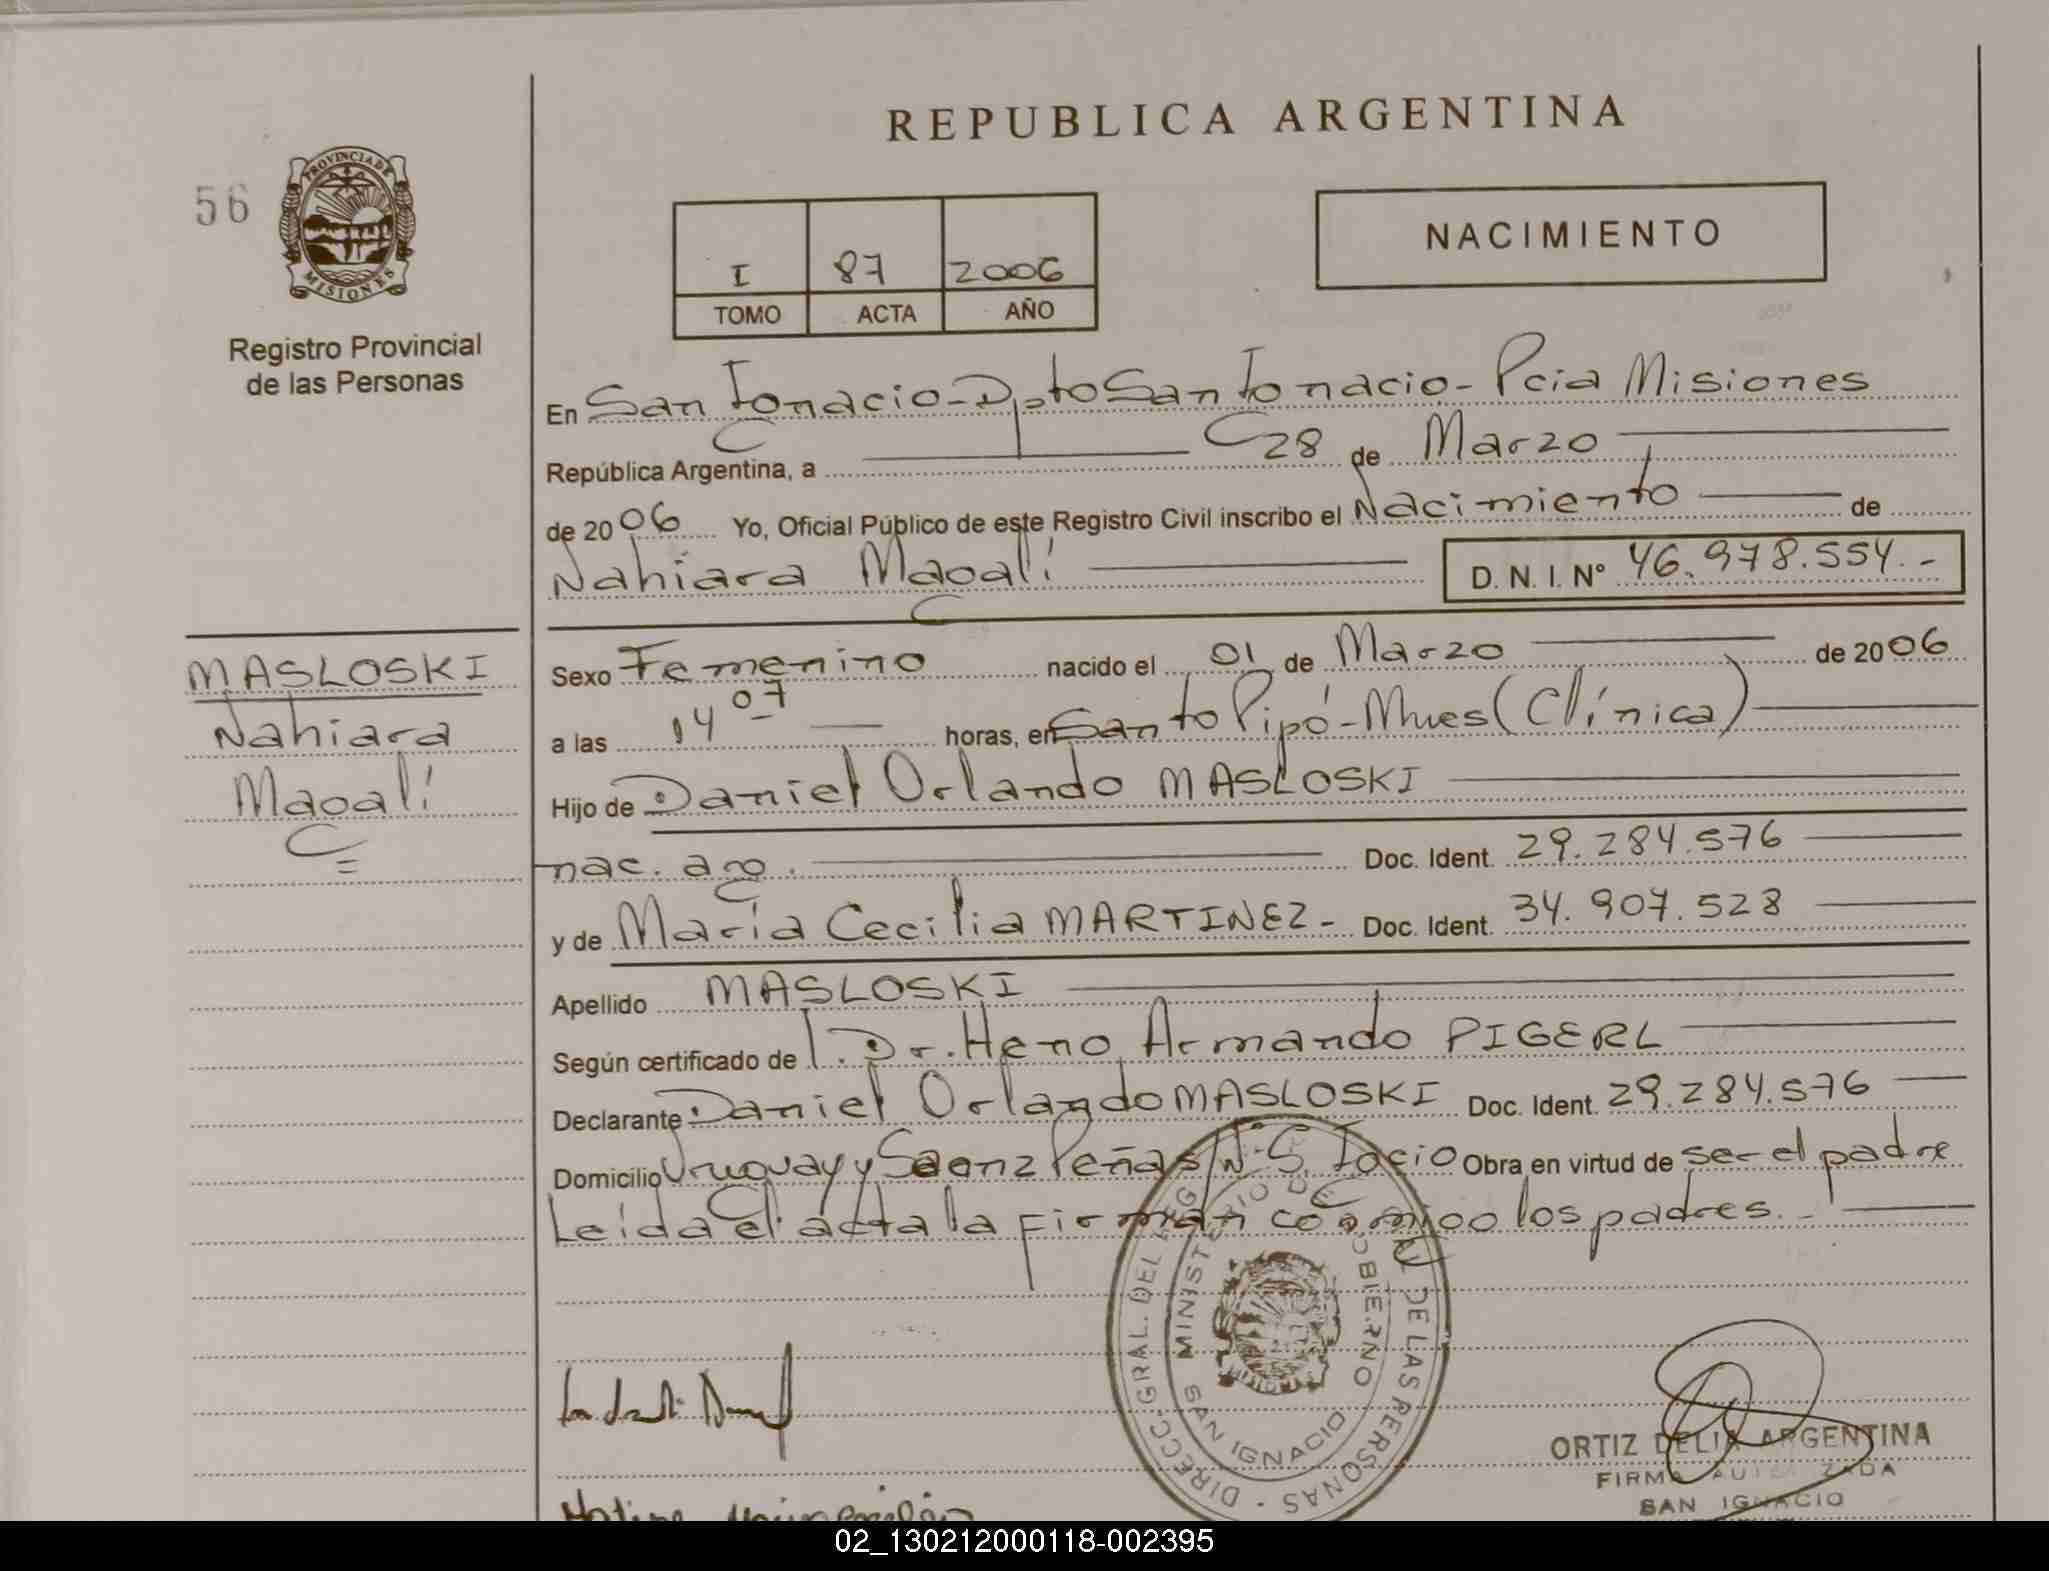 REPUBLICA ARGENTINA
56
PROVINCIA DE
MISIONES
Registro Provincial
de las Personas
I 87 2006
TOMO ACTA AÑO
NACIMIENTO
En San Ignacio - Dpto San Ignacio - Pcia Misiones
República Argentina, a 28 de Marzo
de 2006 Yo, Oficial Público de este Registro Civil inscribo el Nacimiento de
Nahiara Magalí D. N. I. Nº 46.978.554.-
MASLOSKI
Nahiara
Magalí
Sexo Femenino nacido el 01 de Marzo de 2006
a las 14 07 horas, en Santo Pipó - Mnes (Clínica)
Hijo de Daniel Orlando MASLOSKI
nac. arg. Doc. Ident. 29.284.576
y de María Cecilia MARTINEZ - Doc. Ident. 34.907.528
Apellido MASLOSKI
Según certificado de Dr. Heno Armando PIGERL
Declarante Daniel Orlando MASLOSKI Doc. Ident. 29.284.576
Domicilio Uruguay y Saenz Peña s/N - S. Igcio Obra en virtud de ser el padre
Leída el acta la firman conmigo los padres.-
DIRECC. GRAL. DEL REG. DE LAS PERSONAS
MINISTERIO DE GOBIERNO
SAN IGNACIO
MISIONES
ORTIZ DELIA ARGENTINA
FIRMA AUTORIZADA
SAN IGNACIO
02_130212000118-002395